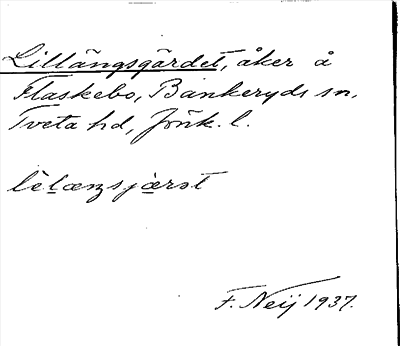 Lillängsgärdet, åker å
Flaskebo, Bankeryds sn,
Tveta hd, Jönk. l.
lìlænsjærst
F. Neij 1937.